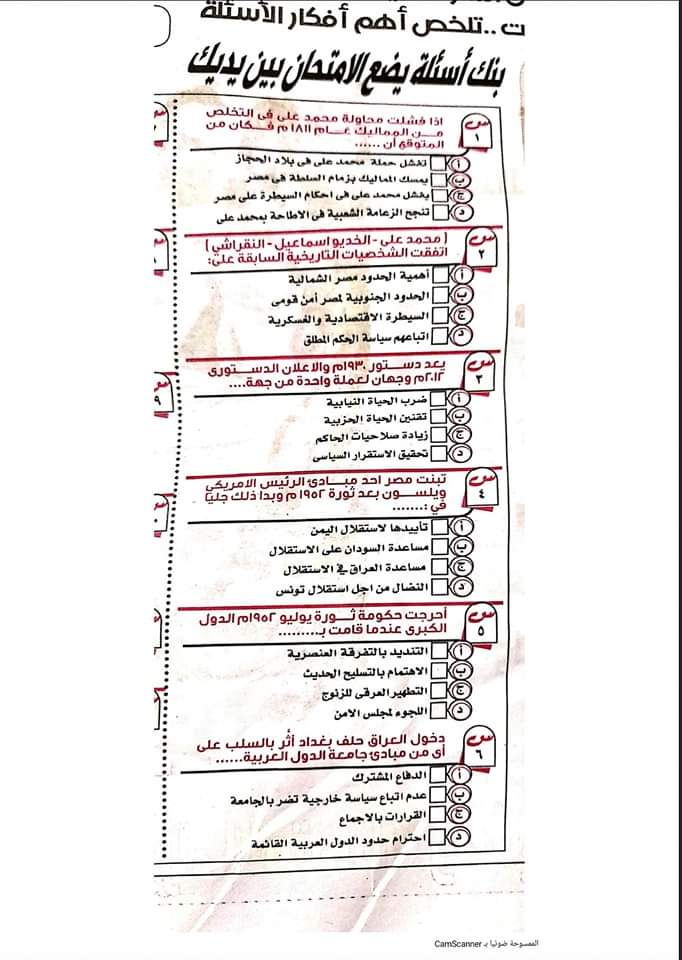 ت ..تلخص أهم أفكار الأسئلة
بنك أسئلة يضع الامتحان بين يديك
س
١
اذا فشلت محاولة محمد على فى التخلص
من المماليك عام ١٨١١ م فكان من
المتوقع أن ......
أ تفشل حملة محمد على فى بلاد الحجاز
ب يمسك المماليك بزمام السلطة فى مصر
ج يفشل محمد على فى احكام السيطرة على مصر
د تنجح الزعامة الشعبية فى الاطاحة بمحمد على
س
٢
( محمد على - الخديو اسماعيل - النقراشي )
اتفقت الشخصيات التاريخية السابقة على:
أ أهمية الحدود مصر الشمالية
ب الحدود الجنوبية لمصر أمن قومى
ج السيطرة الاقتصادية والعسكرية
د اتباعهم سياسة الحكم المطلق
س
٣
يعد دستور ١٩٣٠م والاعلان الدستورى
٢٠١٢م وجهان لعملة واحدة من جهة....
أ ضرب الحياة النيابية
ب تقنين الحياة الحزبية
ج زيادة صلاحيات الحاكم
د تحقيق الاستقرار السياسى
س
٤
تبنت مصر احد مبادئ الرئيس الامريكي
ويلسون بعد ثورة ١٩٥٢ م وبدا ذلك جليا
في :.......
أ تأييدها لاستقلال اليمن
ب مساعدة السودان على الاستقلال
ج مساعدة العراق في الاستقلال
د النضال من اجل استقلال تونس
س
٥
أحرجت حكومة ثورة يوليو ١٩٥٢م الدول
الكبرى عندما قامت بـ.........
أ التنديد بالتفرقة العنصرية
ب الاهتمام بالتسليح الحديث
ج التطهير العرقى للزنوج
د اللجوء لمجلس الامن
س
٦
دخول العراق حلف بغداد أثر بالسلب على
أى من مبادئ جامعة الدول العربية......
أ الدفاع المشترك
ب عدم اتباع سياسة خارجية تضر بالجامعة
ج القرارات بالاجماع
د احترام حدود الدول العربية القائمة
٩
الممسوحة ضوئيا بـ CamScanner